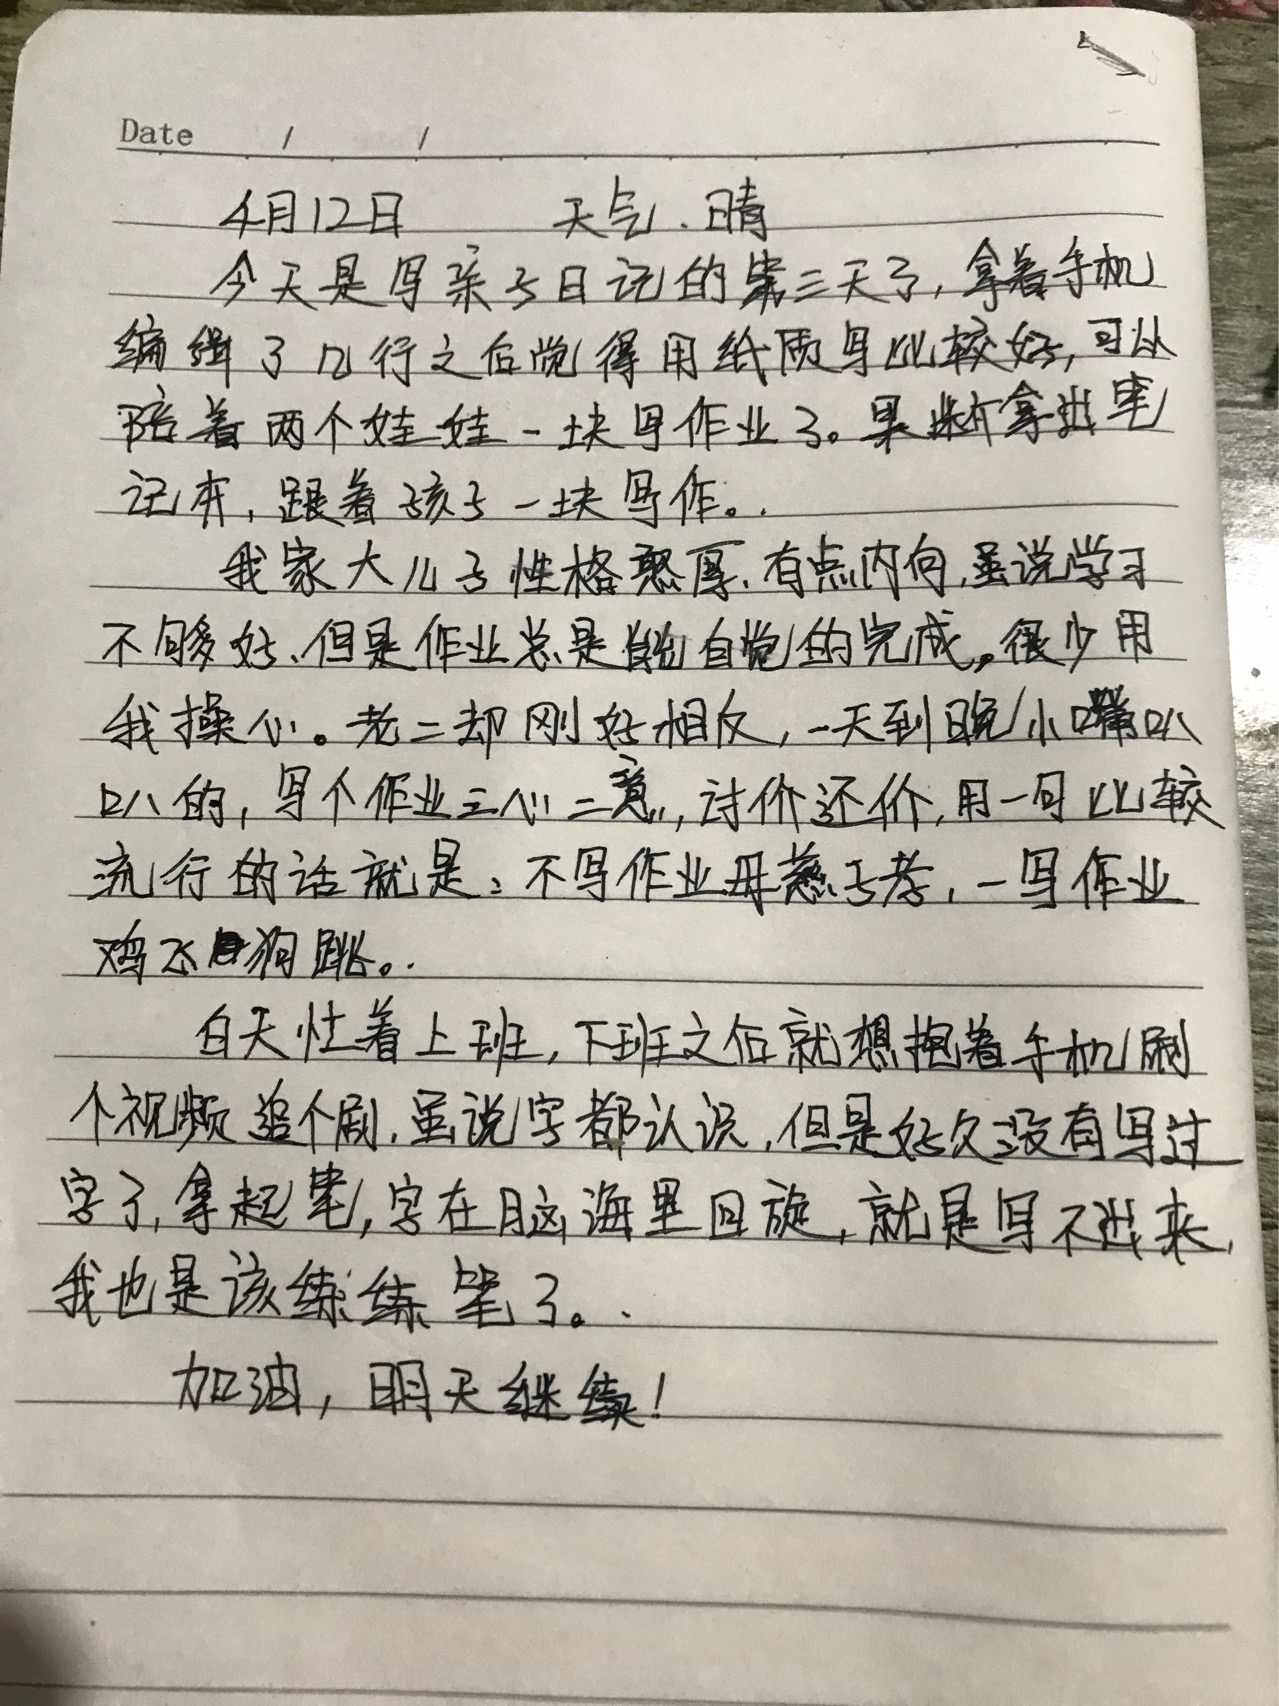 Date / /
4月12日 天气.晴
今天是写亲子日记的第三天了,拿着手机
编缉了几行之后觉得用纸质写比较好,可以
陪着两个娃娃一块写作业了。果断拿出笔
记本,跟着孩子一块写作。
我家大儿子性格憨厚、有点内向,虽说学习
不够好、但是作业总是自觉的完成,很少用
我操心。老二却刚好相反,一天到晚小嘴叭
叭的,写个作业三心二意,讨价还价,用一句比较
流行的话就是:不写作业母慈子孝,一写作业
鸡飞狗跳。
白天忙着上班,下班之后就想抱着手机刷
个视频追个剧,虽说字都认识,但是好久没有写过
字了,拿起笔,字在脑海里回旋,就是写不出来,
我也是该练练笔了。
加油,明天继续!